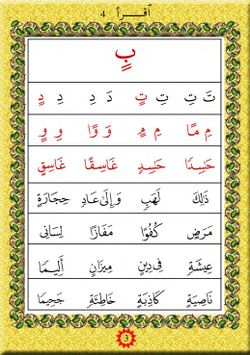 اقـرأ 4
بٍ
تَ تِ تٍ دَ دِ دٍ
مَ مًا مِ مٍ وَ وًا وِ وٍ
حَسِدًا حَسِدٍ غَاسِقًا غَاسِقٍ
ذَلِكَ لَهَبٍ وَإِلَى عَادٍ حِجَارَةٍ
مَرَضٍ كُفُوًا مَفَازًا لِسَانِي
عِيشَةٍ فِي دِينِ مِيزَانٍ أَلِيمًا
نَاصِيَةٍ كَاذِبَةٍ خَاطِئَةٍ جَحِيمًا
3